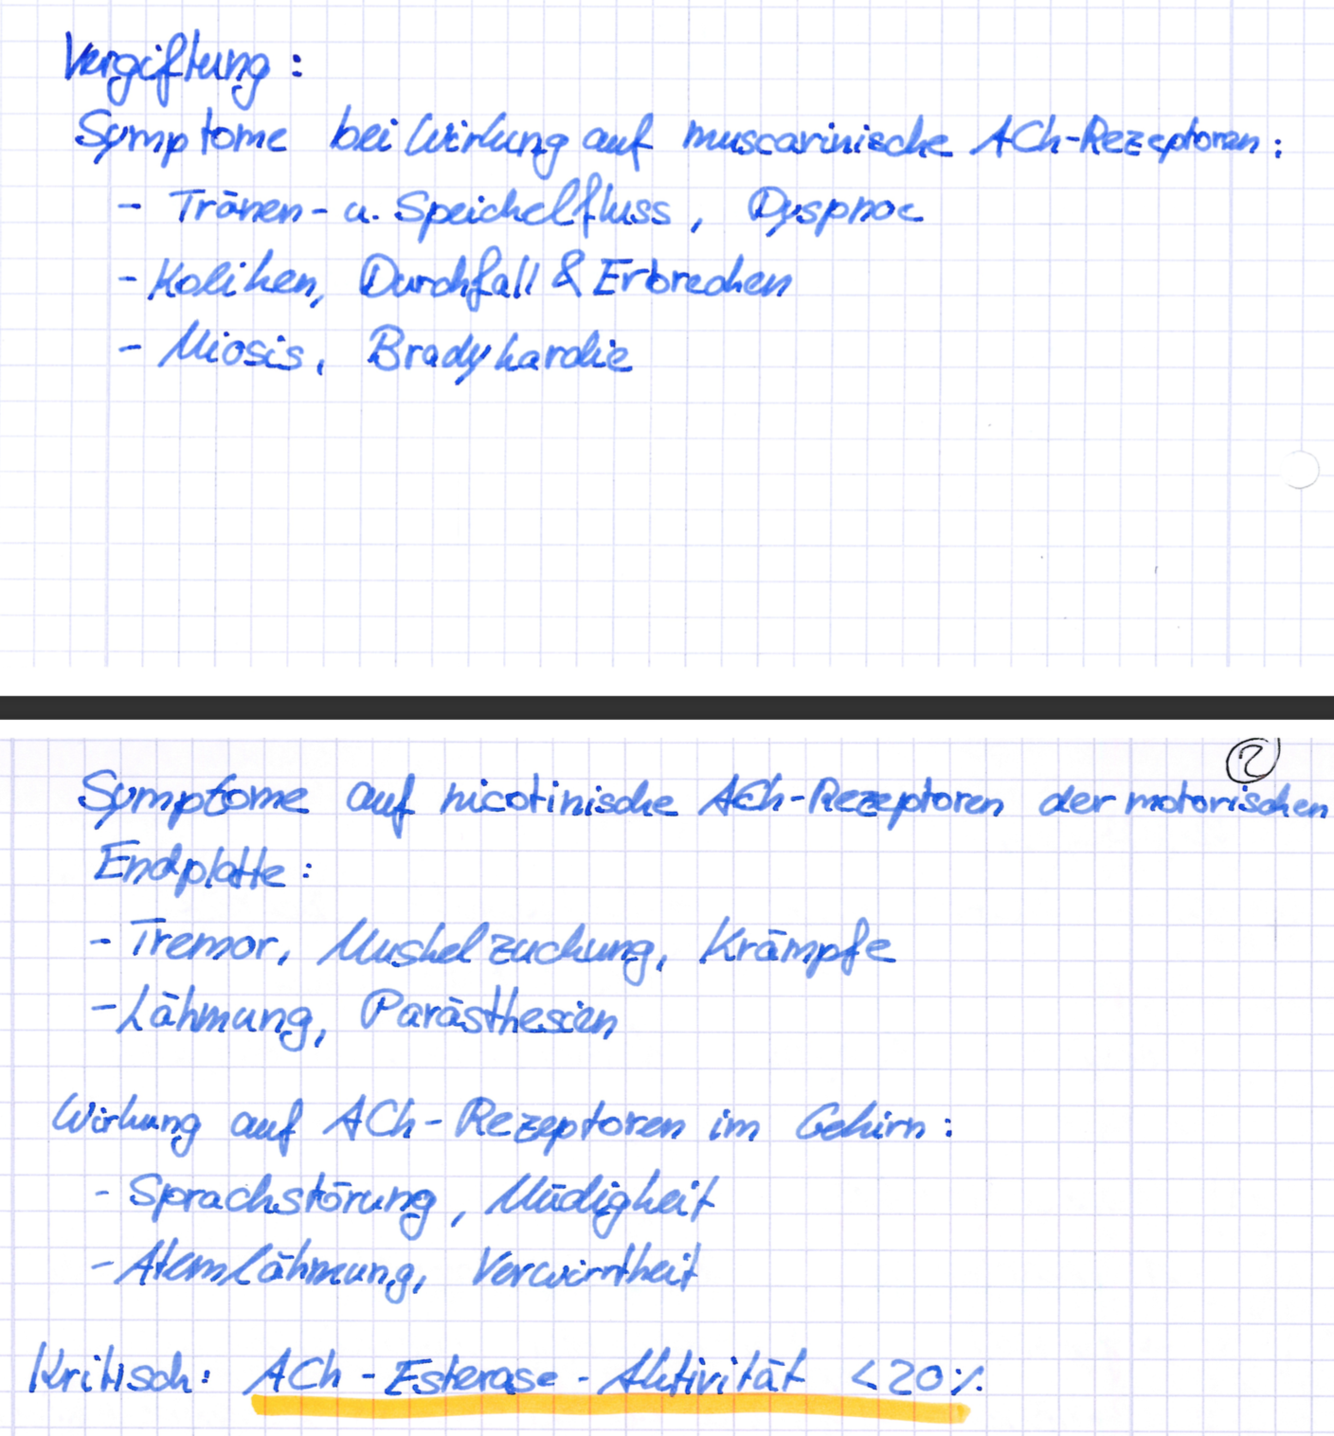 Vergiftung:
Symptome bei Wirkung auf muscarinische ACh-Rezeptoren:
- Tränen- u. Speichelfluss, Dyspnoe
- Koliken, Durchfall & Erbrechen
- Miosis, Bradykardie
2
Symptome auf nicotinische ACh-Rezeptoren der motorischen
Endplatte:
- Tremor, Muskelzuckung, Krämpfe
- Lähmung, Parästhesien
Wirkung auf ACh-Rezeptoren im Gehirn:
- Sprachstörung, Müdigkeit
- Atemlähmung, Verwirrtheit
Kritisch: ACh-Esterase-Aktivität <20%